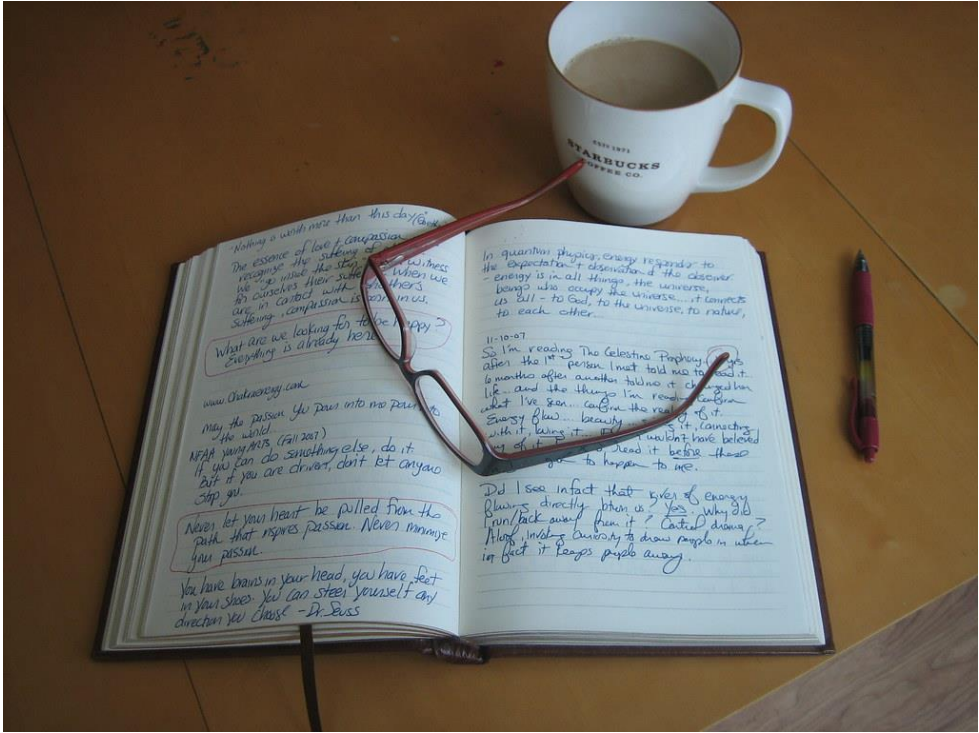 EST. 1971
STARBUCKS
COFFEE CO.
"Nothing is worth more than this day
The essence of love & compassion
recognize the suffering of witness
we go inside the skin
to ourselves their suffering When we
are in contact with another's
suffering, compassion is born in us.
What are we looking for to be happy?
Everything is already here
www.Chakraenergy.com
may the passion you pour into me pour to
the world...
NFAA young ARTS (Fall 2007)
If you can do something else, do it
But if you are driven, don't let anyone
stop you.
Never let your heart be pulled from the
path that inspires passion. Never minimize
your passion.
You have brains in your head, you have feet
in your shoes. You can steer yourself any
direction you choose - Dr. Seuss
In quantum physics, energy responds to
the expectation & observation of the observer
- energy is in all things, the universe,
beings who occupy the universe... it connects
us all - to God, to the universe, to nature,
to each other...
11-10-07
So I'm reading The Celestine Prophecy
after the 1st person I met told me to read it.
6 months after another told me it changed her
life... and the things I'm reading confirm
what I've seen... confirm the reality of it.
Energy flow... beauty it, connecting
with it, it wouldn't have believed
of it read it before these
to happen to me.
Did I see in fact that of energy
flowing directly btwn us? Yes. Why did
I run/back away from it? Control drama?
Aloof, involving curiosity to draw people in when
in fact it keeps people away.